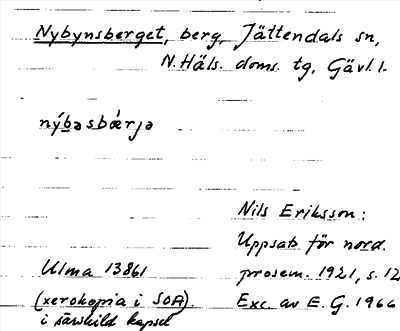 Nybynsberget, berg, Jättendals sn,
N. Häls. doms. tg, Gävl. l.
nýbəsbœ́rjə
Nils Eriksson:
Uppsats för nord.
Ulma 13861 prosem. 1921, s. 12
(xerokopia i SOA). Exc. av E. G. 1966
i särskild kapsel